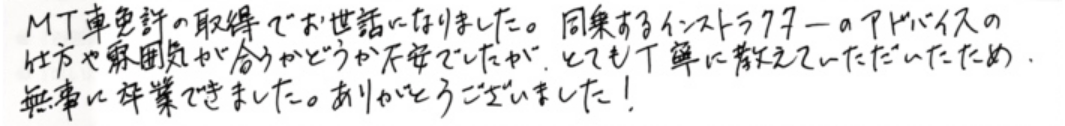 MT車免許の取得でお世話になりました。同乗するインストラクターのアドバイスの
仕方や雰囲気が合うかどうか不安でしたが、とても丁寧に教えていただいたため、
無事に卒業できました。ありがとうございました！